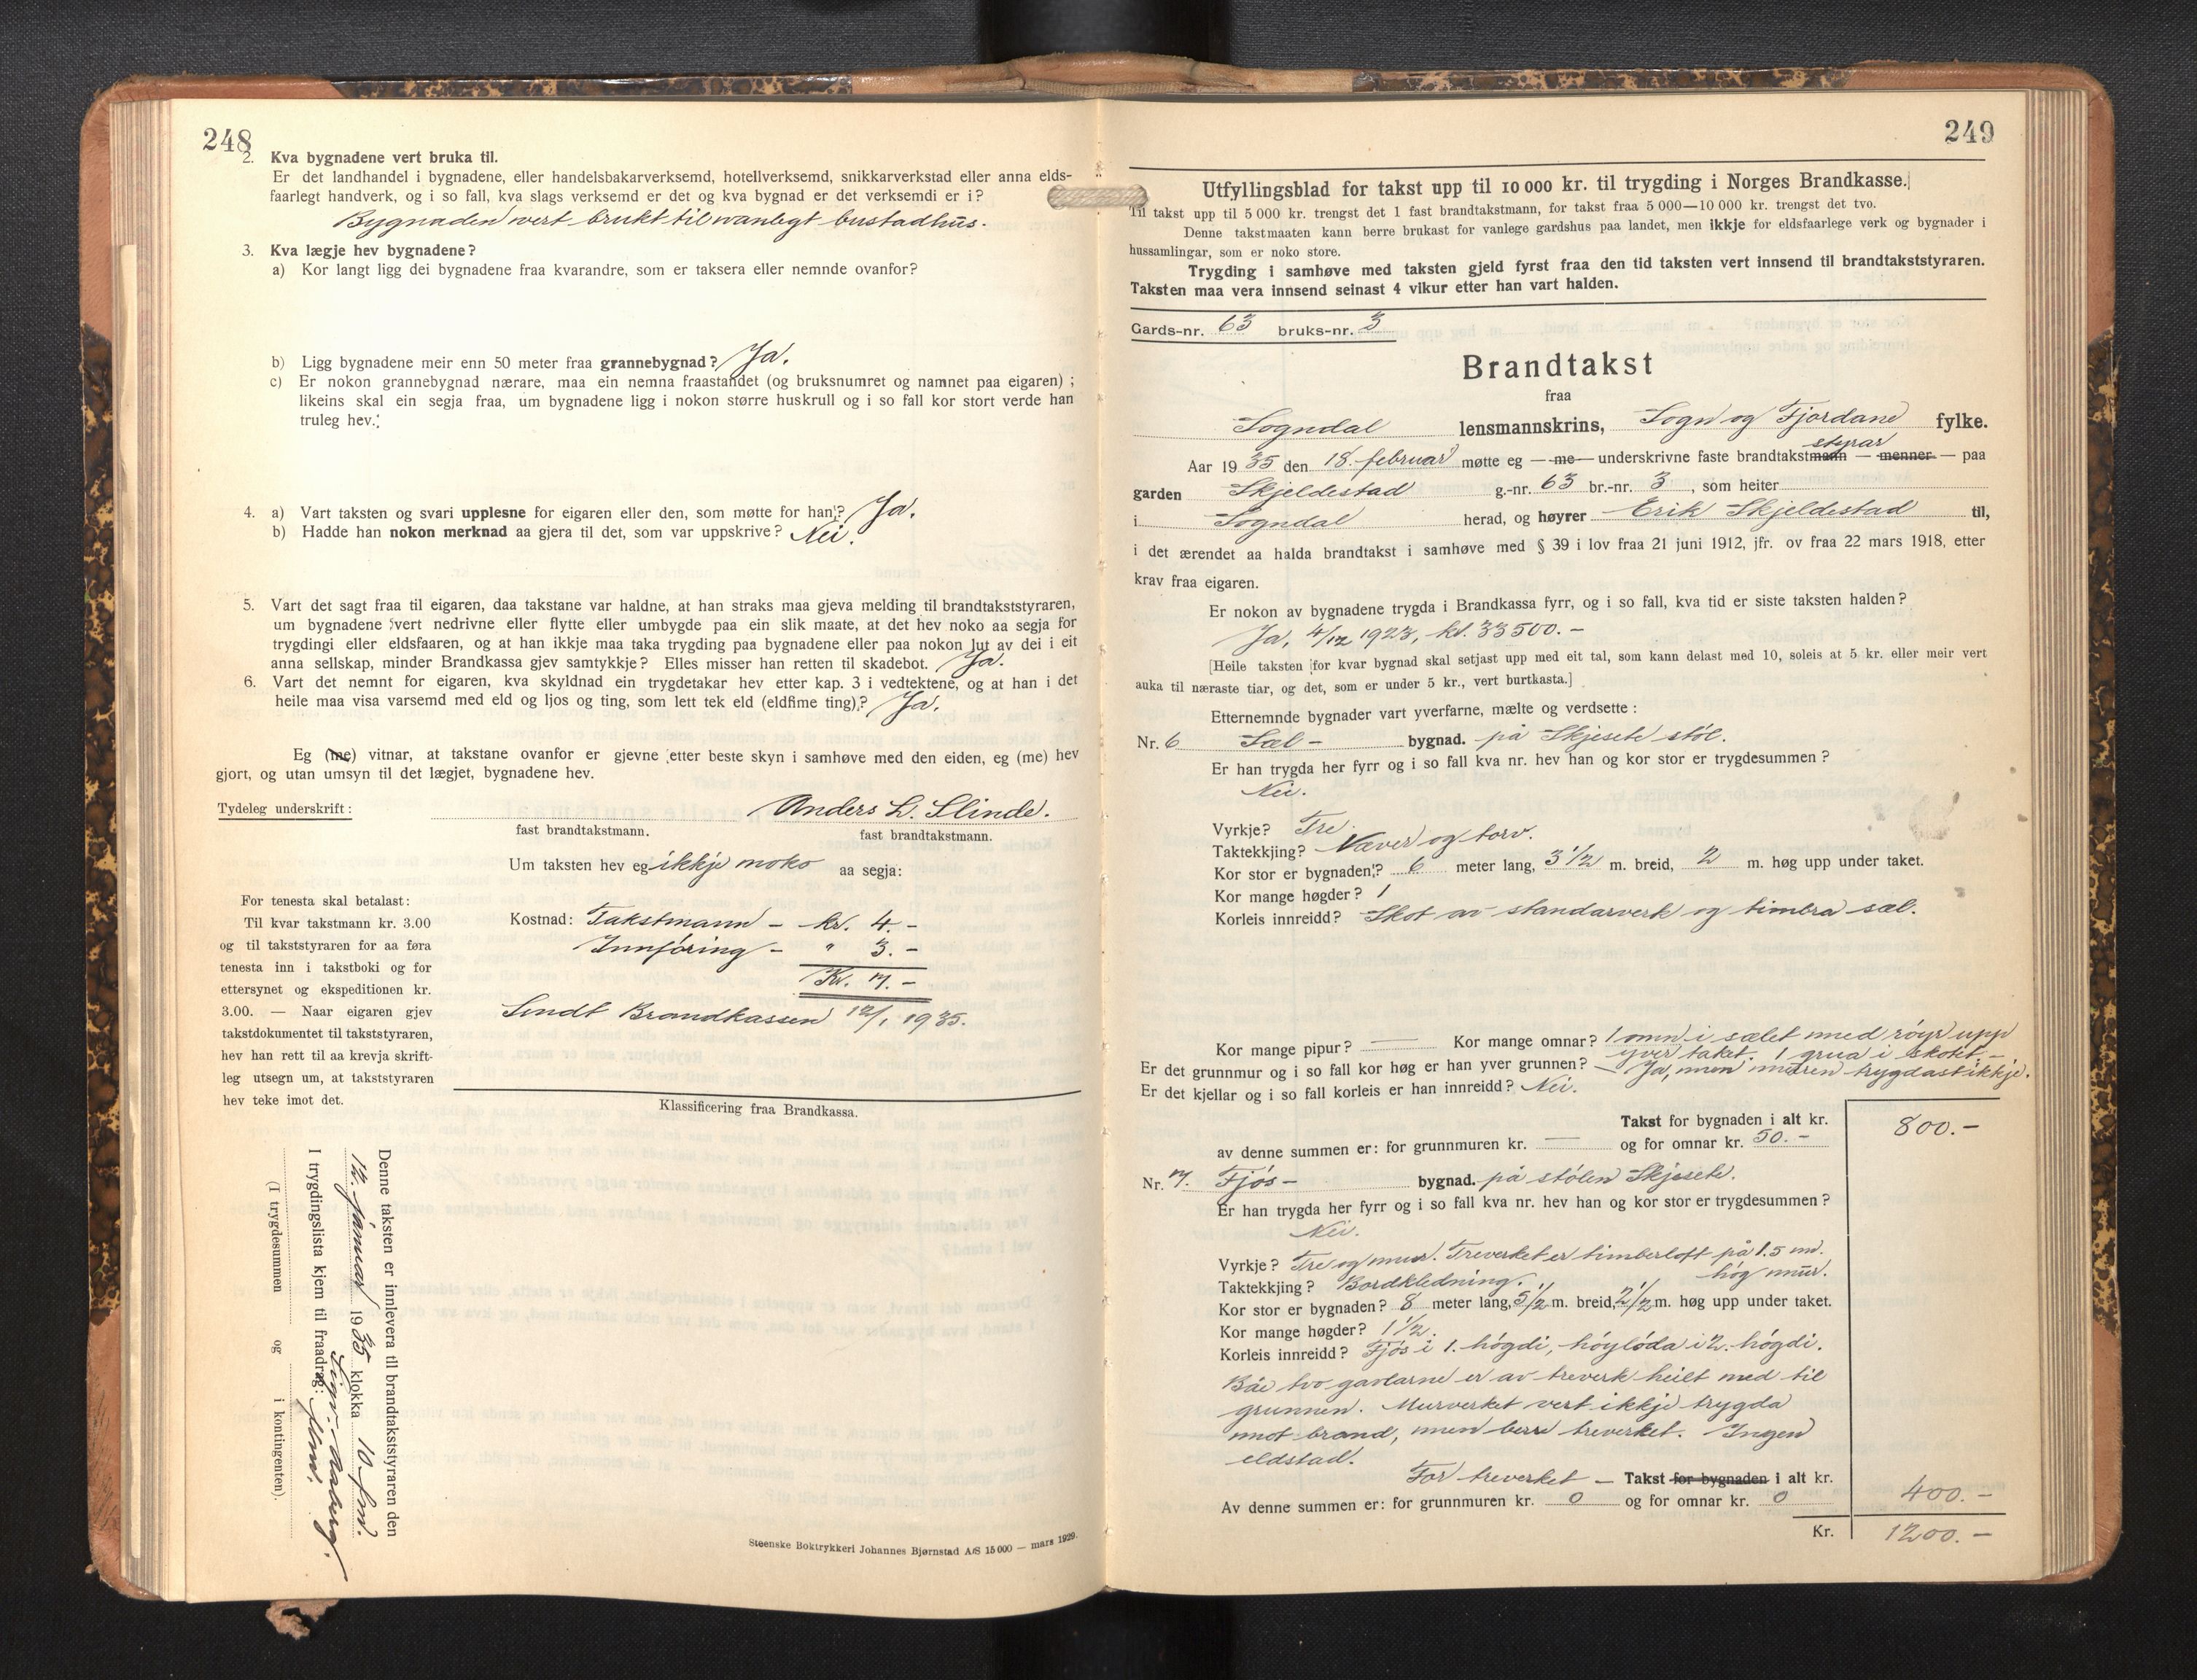 248
2. Kva bygnadene vert bruka til.
Er det landhandel i bygnadene, eller handelsbakarverksemd, hotellverksemd, snikkarverkstad eller anna elds-
faarlegt handverk, og i so fall, kva slags verksemd er det og kva bygnad er det verksemdi er i?
Bygnaden vert brukt til vanlegt bustadhus.
3. Kva lægje hev bygnadene?
a) Kor langt ligg dei bygnadene fraa kvarandre, som er taksera eller nemnde ovanfor?
b) Ligg bygnadene meir enn 50 meter fraa grannebygnad? Ja.
c) Er nokon grannebygnad nærare, maa ein nemna fraastandet (og bruksnumret og namnet paa eigaren) ;
likeins skal ein segja fraa, um bygnadene ligg i nokon større huskrull og i so fall kor stort verde han
truleg hev.
4. a) Vart taksten og svari upplesne for eigaren eller den, som møtte for han? Ja.
b) Hadde han nokon merknad aa gjera til det, som var uppskrive? Nei.
5. Vart det sagt fraa til eigaren, daa takstane var haldne, at han straks maa gjeva melding til brandtakststyraren,
um bygnadene vert nedrivne eller flytte eller umbygde paa ein slik maate, at det hev noko aa segja for
trygdingi eller eldsfaaren, og at han ikkje maa taka trygding paa bygnadene eller paa nokon lut av dei i eit
anna sellskap, minder Brandkassa gjev samtykkje? Elles misser han retten til skadebot. Ja.
6. Vart det nemnt for eigaren, kva skyldnad ein trygdetakar hev etter kap. 3 i vedtektene, og at han i det
heile maa visa varsemd med eld og ljos og ting, som lett tek eld (eldfime ting)? Ja.
Eg (me) vitnar, at takstane ovanfor er gjevne etter beste skyn i samhøve med den eiden, eg (me) hev
gjort, og utan umsyn til det lægjet, bygnadene hev.
Tydeleg underskrift: Anders L. Slinde.
fast brandtakstmann. fast brandtakstmann.
Um taksten hev eg ikkje noko aa segja:
For tenesta skal betalast:
Til kvar takstmann kr. 3.00
og til takststyraren for aa føra
tenesta inn i takstboki og for
ettersynet og ekspeditionen kr.
3.00. — Naar eigaren gjev
takstdokumentet til takststyraren,
hev han rett til aa krevja skrift-
leg utsegn um, at takststyraren
hev teke imot det.
Kostnad: Takstmann - kr. 4.-
Innföring - " 3.-
Kr. 7.-
Sendt Brandkassen 12/1 1935.
Klassificering fraa Brandkassa.
Denne taksten er innlevera til brandtakststyraren den
12. januar 1935 klokka 10 fm.
I trygdingslista kjem til fraadrag:
(I trygdesummen og i kontingenten).
Steenske Boktrykkeri Johannes Bjørnstad A/S 15 000 — mars 1929.
249
Utfyllingsblad for takst upp til 10 000 kr. til trygding i Norges Brandkasse.
Til takst upp til 5 000 kr. trengst det 1 fast brandtakstmann, for takst fraa 5 000—10 000 kr. trengst det tvo.
Denne takstmaaten kann berre brukast for vanlege gardshus paa landet, men ikkje for eldsfaarlege verk og bygnader i
hussamlingar, som er noko store.
Trygding i samhøve med taksten gjeld fyrst fraa den tid taksten vert innsend til brandtakststyraren.
Taksten maa vera innsend seinast 4 vikur etter han vart halden.
Gards-nr. 63 bruks-nr. 3
Brandtakst
fraa
Sogndal lensmannskrins, Sogn og Fjordane fylke.
styrar
Aar 1935 den 18. februar møtte eg — me — underskrivne faste brandtakstmann — menner — paa
garden Skjeldestad g.-nr. 63 br.-nr. 3, som heiter
i Sogndal herad, og høyrer Erik Skjeldestad til,
i det ærendet aa halda brandtakst i samhøve med § 39 i lov fraa 21 juni 1912, jfr. ov fraa 22 mars 1918, etter
krav fraa eigaren.
Er nokon av bygnadene trygda i Brandkassa fyrr, og i so fall, kva tid er siste taksten halden?
Ja, 4/12 1923, kr. 33500.-
[Heile taksten for kvar bygnad skal setjast upp med eit tal, som kann delast med 10, soleis at 5 kr. eller meir vert
auka til næraste tiar, og det, som er under 5 kr., vert burtkasta.]
Etternemnde bygnader vart yverfarne, mælte og verdsette :
Nr. 6 Sæl - bygnad. på Skjesete støl.
Er han trygda her fyrr og i so fall kva nr. hev han og kor stor er trygdesummen ?
Nei.
Vyrkje? Tre.
Taktekkjing? Næver og torv.
Kor stor er bygnaden? 6 meter lang, 3 1/2 m. breid, 2 m. høg upp under taket.
Kor mange høgder? 1
Korleis innreidd? Skot av standarverk og timbra sæl.
Kor mange pipur? — Kor mange omnar? 1 omn i sælet med röyr upp
yver taket. 1 grua i skotet.-
Er det grunnmur og i so fall kor høg er han yver grunnen? — Ja, men muren trygdast ikkje.
Er det kjellar og i so fall korleis er han innreidd? Nei.
Takst for bygnaden i alt kr. 800.-
av denne summen er: for grunnmuren kr. — og for omnar kr. 50.-
Nr. 7. Fjös - bygnad. på stölen Skjesete.
Er han trygda her fyrr og i so fall kva nr. hev han og kor stor er trygdesummen ?
Nei.
Vyrkje? Tre og mur. Treverket er timberloft på 1.5 m.
høg mur.
Taktekkjing? Bordkledning.
Kor stor er bygnaden? 8 meter lang, 5 1/2 m. breid, 2 1/2 m. høg upp under taket.
Kor mange høgder? 1 1/2.
Korleis innreidd? Fjös i 1. högdi, höylöda i 2. högdi.
Båe tvo gavlarne er av treverk heilt med til
grunnen. Murverket vert ikkje trygda
mot brand, men berre treverket. Ingen
eldstad.
For treverket - Takst for bygnaden i alt kr. 400.-
Av denne summen er: for grunnmuren kr. 0 og for omnar kr. 0
Kr. 1200.-